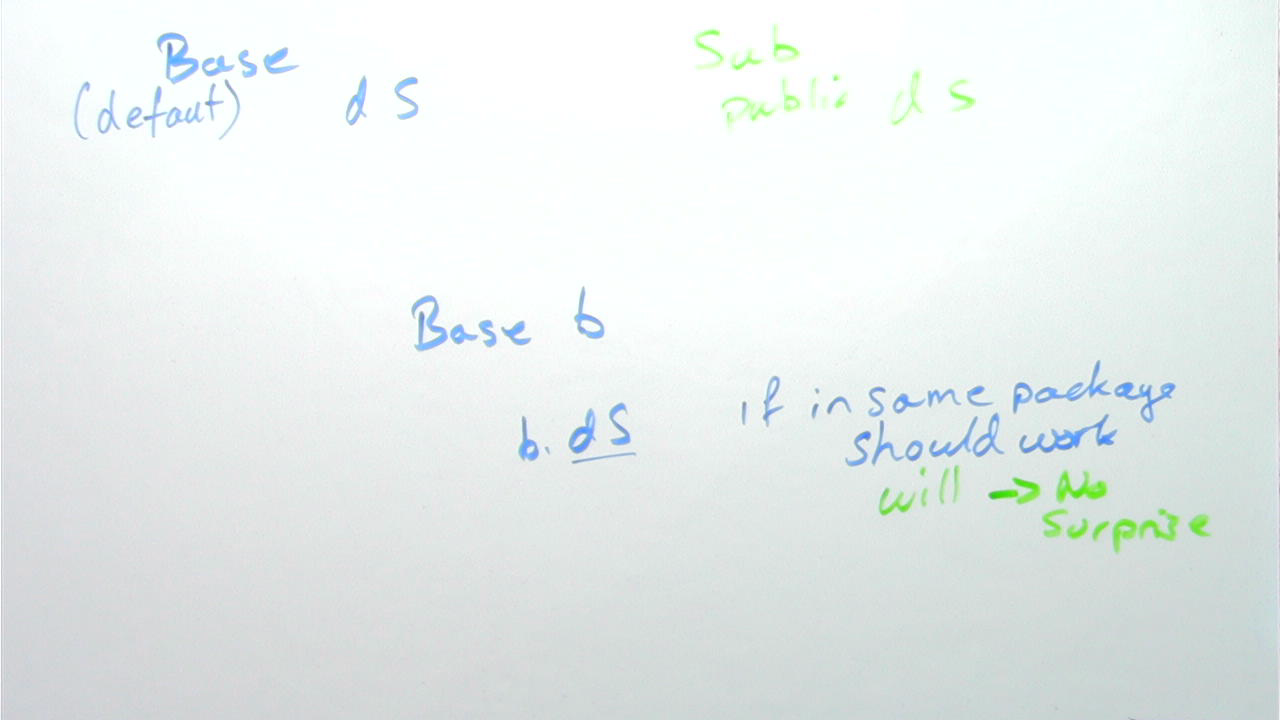 Base
(defaut) d S
Sub
public d s
Base b
b. dS
if in same package
should work
will -> No
Surprise